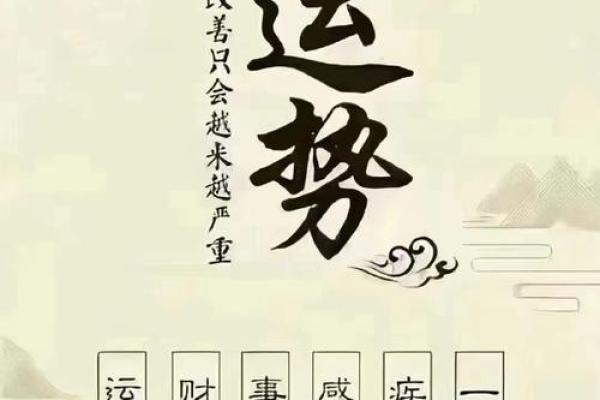 运势
改善只会越米越严重
一
疾
感
事
财
运